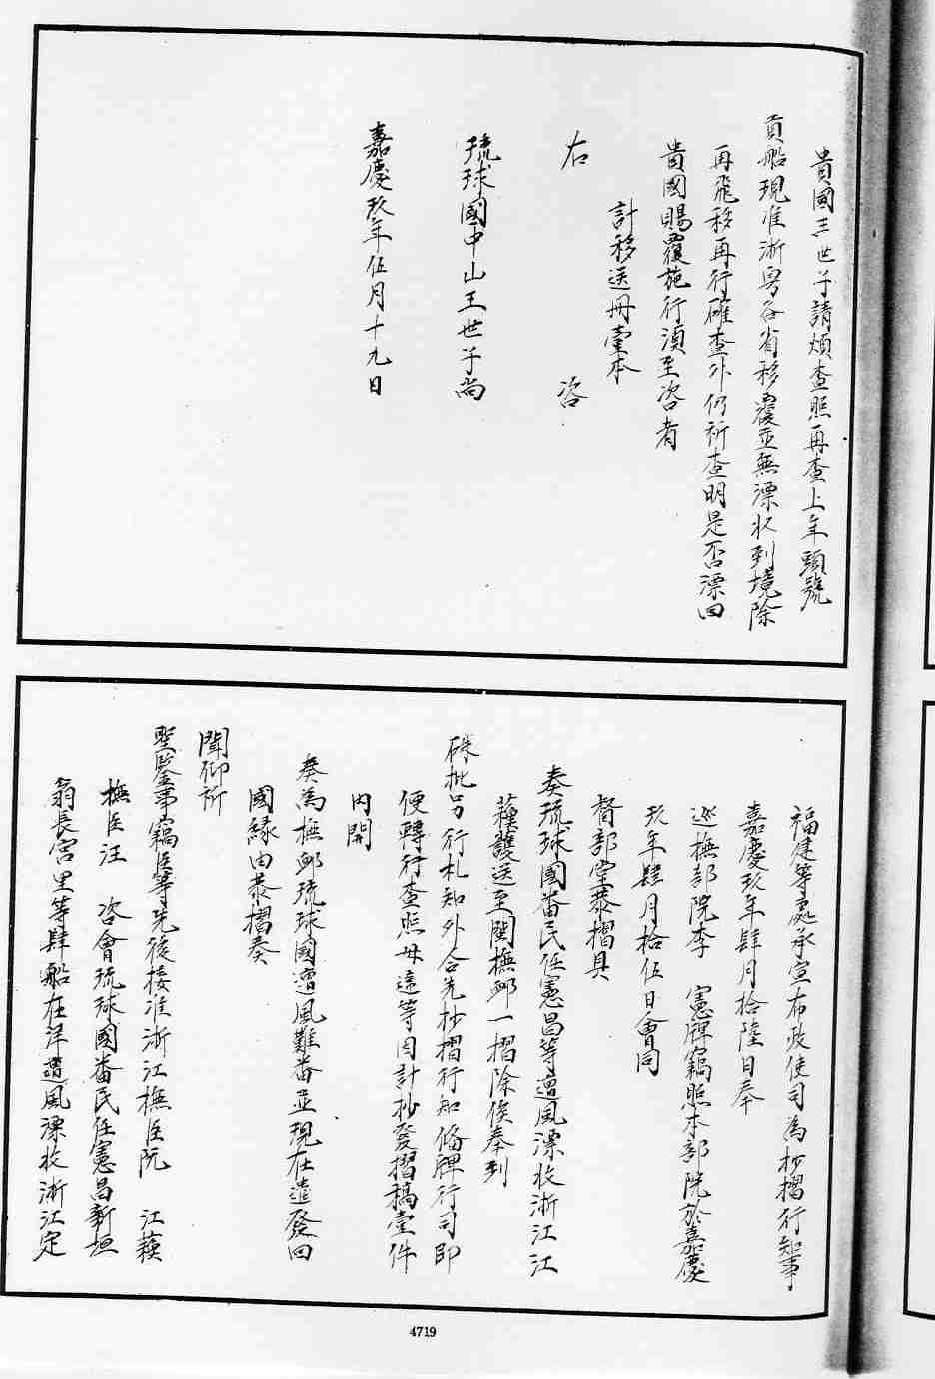 貴國王世子請煩查照再查上年頭號
貢船現准浙粵各省移覆並無漂收到境除
再飛移再行確查外仍祈查明是否漂回
貴國賜覆施行須至咨者
計移送冊壹本
右 咨
琉球國中山王世子尚
嘉慶玖年伍月十九日
福建等處承宣布政使司為抄摺行知事
嘉慶玖年肆月拾陸日奉
巡撫部院李 憲牌竊照本部院於嘉慶
玖年肆月拾伍日會同
督部堂恭摺具
奏琉球國番民任憲昌等遭風漂收浙江江
蘇護送至閩撫卹一摺除俟奉到
硃批另行札知外合先抄摺行知備牌行司即
便轉行查照毋違等因計抄發摺稿壹件
內開
奏為撫卹琉球國遭風難番並現在遣發回
國緣由恭摺奏
聞仰祈
聖鑒事竊臣等先後接准浙江撫臣阮 江蘇
撫臣汪 咨會琉球國番民任憲昌新垣
翁長宮里等肆船在洋遭風漂收浙江定
4719